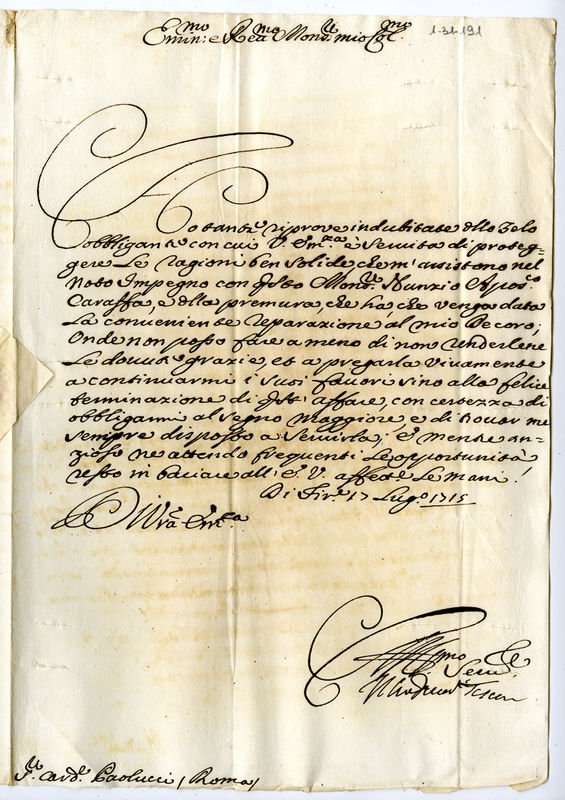 Emin:mo e Rea:mo Mons:r mio Col:mo
1-31-191
Ho tante riprove indubitate dello Zelo
obbligante con cui V. Em:za è servita di proteg=
gere le ragioni ben solide che m'assistono nel
noto Impegno con Mons:r Nunzio Apos:co
Caraffa, e della premura, che ha, che venga data
la conveniente reparazione al mio Decoro,
Onde non posso fare a meno di non renderlene
le dovute grazie, et a pregarla vivamente
a continuarmi i suoi favori sino alla felice
terminazione di affare, con certezza di
obbligarmi al segno maggiore, e di trovar me
sempre disposto a servirla; e mentre an=
zioso ne attendo frequenti le opportunità
resto in baciare all' E. V. affett:e le mani.
Di Fir:e 17 Lug:o 1715
Di V:ra Em:za
Aff:mo Serv:e
Card:l Paolucci (Roma)